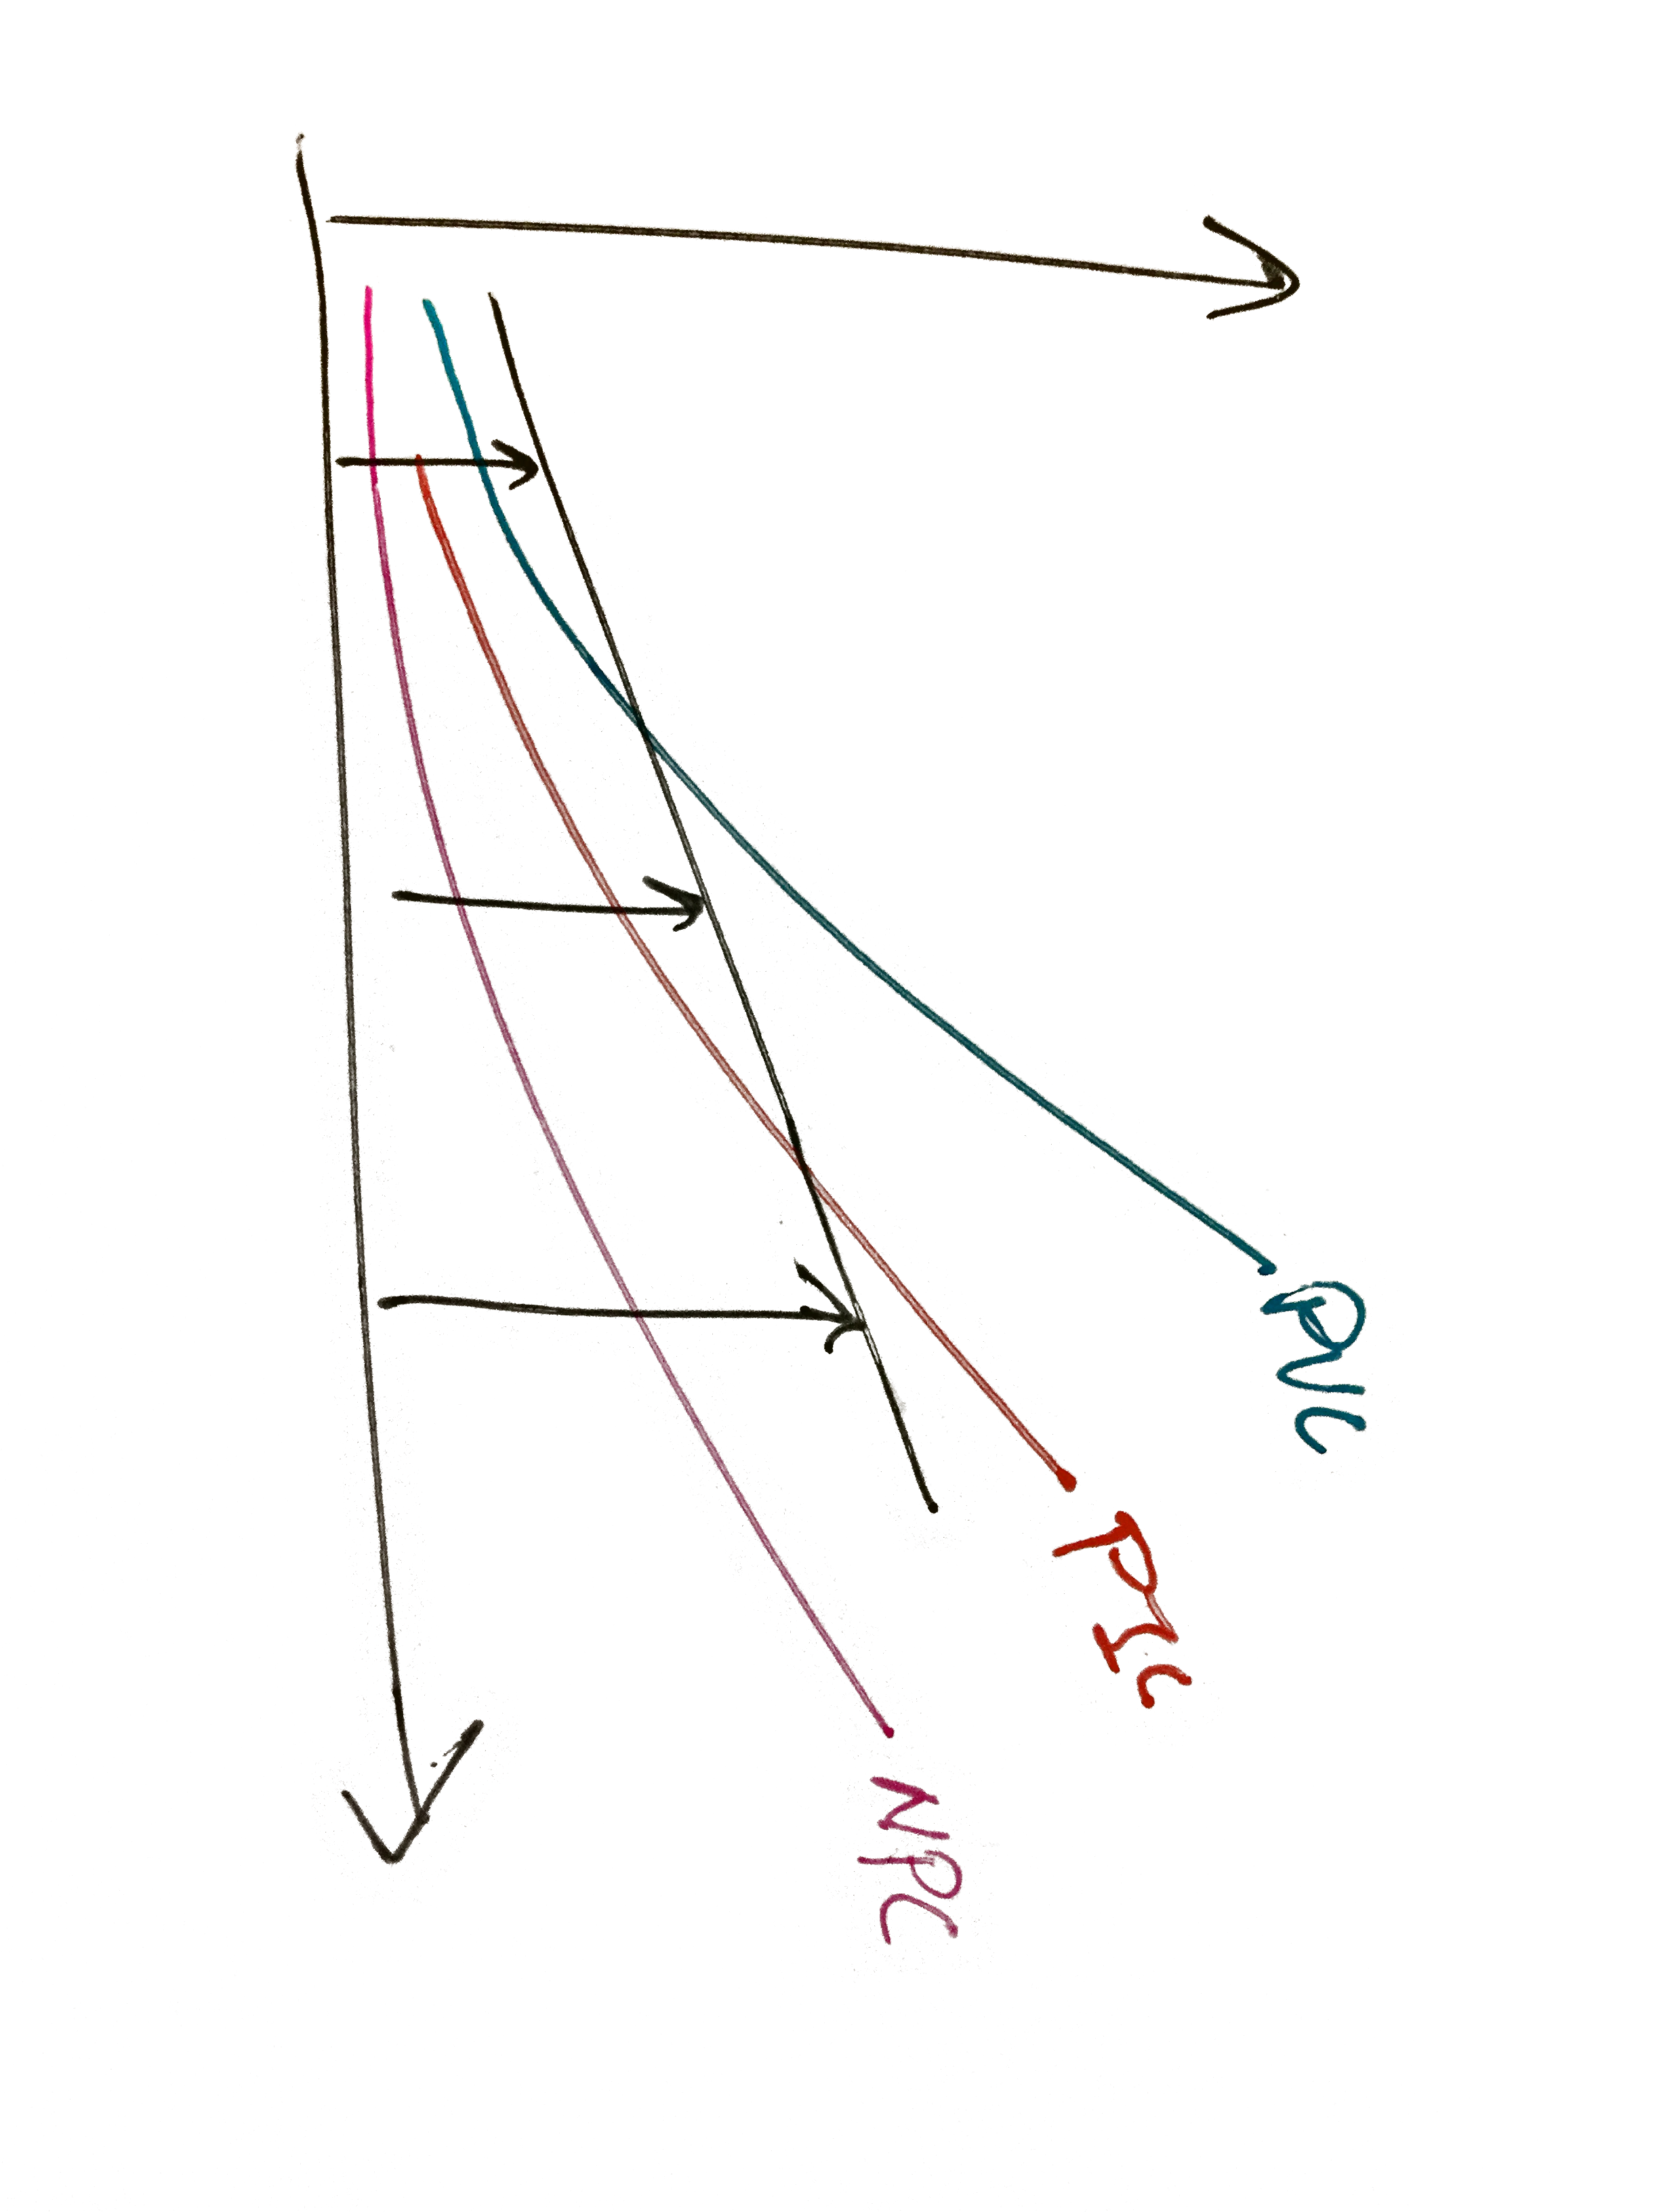 PVC
PIC
NPC